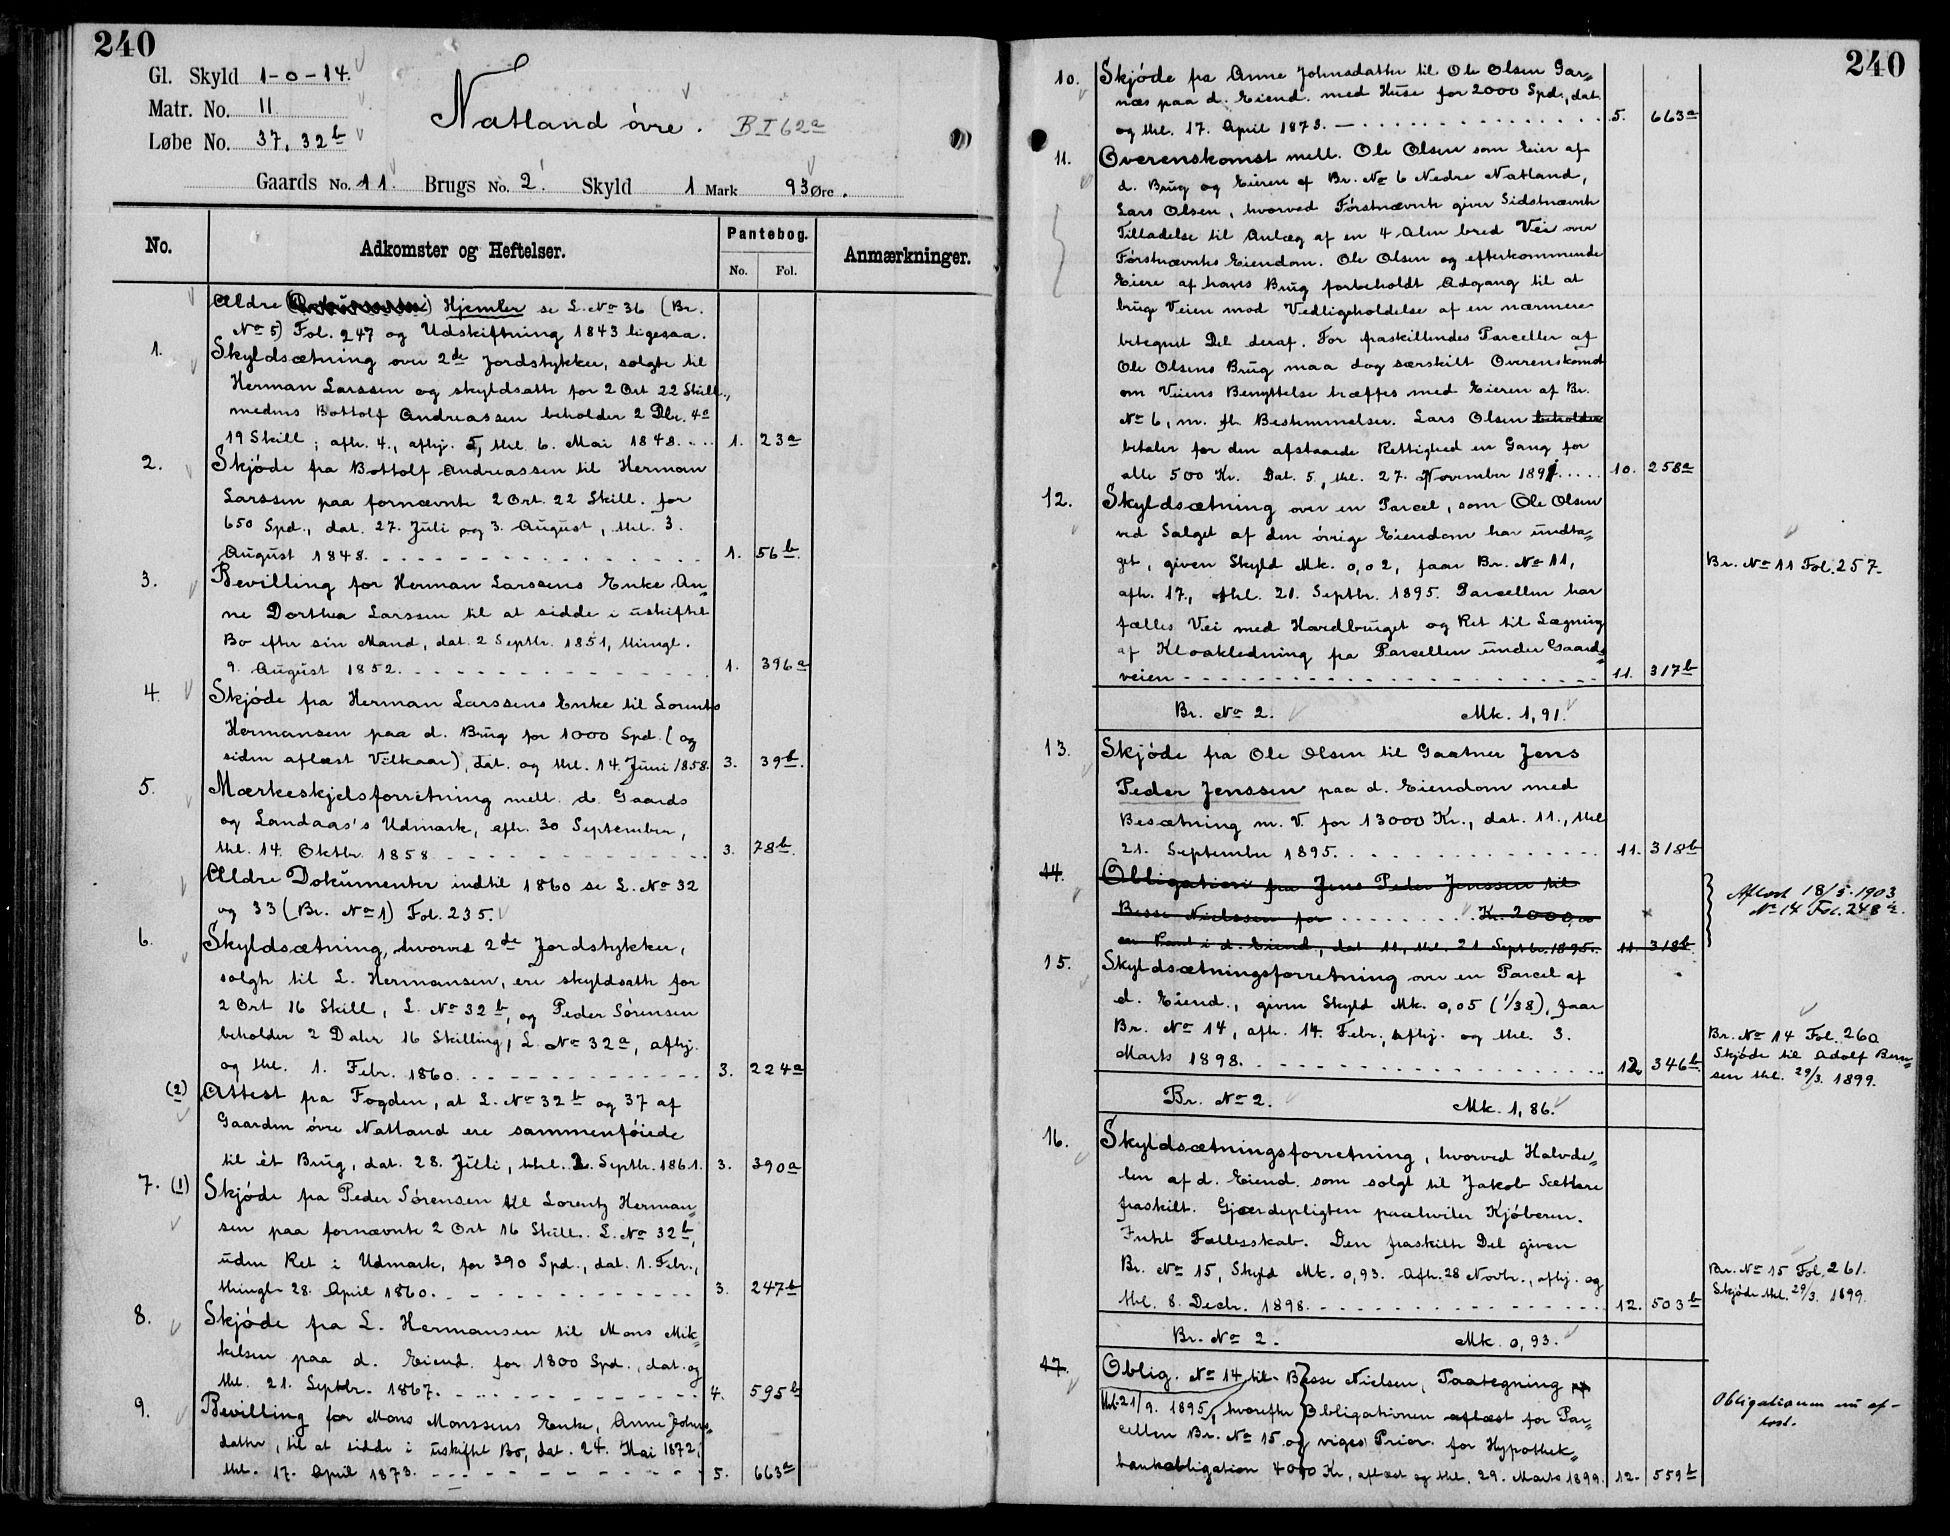 240
Gl. Skyld 1-0-14.
Matr. No. 11
Løbe No. 37, 32b
Natland øvre. B I 62a
Gaards No. 11. Brugs No. 2. Skyld 1 Mark 93 Øre.
No. Adkomster og Heftelser. Pantebog. No. Fol. Anmærkninger.
Ældre Hjemler se L. No 36 (Br.
No 5) Fol. 247 og Udskiftning 1843 ligesaa.
1. Skyldsætning over 2de Jordstykker, solgte til
Herman Larssen og skyldsatte for 2 Ort 22 Skill.,
medens Bottolf Andreassen beholder 2 Dlr. 4a
19 Skill; afh. 4., afhj. 5, thl. 6. Mai 1848. 1. 23a
2. Skjøde fra Bottolf Andreassen til Herman
Larssen paa fornævnte 2 Ort. 22 Skill. for
650 Spd., dat. 27. Juli og 3. August, thl. 3.
August 1848. 1. 56b
3. Bevilling for Herman Larssens Enke An-
ne Dorthea Larssen til at sidde i uskiftet
Bo efter sin Mand, dat. 2 Septbr. 1851, thingl.
9. August 1852. 1. 396a
4. Skjøde fra Herman Larssens Enke til Lorents
Hermansen paa d. Brug for 1000 Spd. (og
siden aflæst Vilkaar), dat. og thl. 14. Juni 1858. 3. 39b.
5. Mærkeskjelsforretning mell. d. Gaards
og Landaas's Udmark, afh. 30 September,
thl. 14. Oktbr. 1858 3. 78b.
Ældre Dokumenter indtil 1860 se L. No 32
og 33 (Br. No 1) Fol. 235.
6. Skyldsætning, hvorved 2de Jordstykker,
solgte til L. Hermansen, ere skyldsatte for
2 Ort 16 Skill, L. No 32b, og Peder Sörensen
beholder 2 Daler 16 Skilling, L. No 32a, afhj.
og thl. 1. Febr. 1860. 3. 224a
(2) Attest fra Fogden, at L. No 32b og 37 af
Gaarden øvre Natland ere sammenføiede
til ét Brug, dat. 28. Juli, thl. 2. Septbr. 1861. 3. 390a
7. (1) Skjøde fra Peder Sörensen til Lorentz Herman-
sen paa fornævnte 2 Ort 16 Skill. L. No 32b,
uden Ret i Udmark, for 390 Spd., dat. 1. Febr.,
thingl. 28. April 1860. 3. 247b
8. Skjøde fra L. Hermansen til Mons Mik-
kelsen paa d. Eiend. for 1800 Spd., dat. og
thl. 21. Septbr. 1867. 4. 595b
9. Bevilling for Mons Monssens Enke, Anne Johns-
datter, til at sidde i uskiftet Bo, dat. 24. Mai 1872,
thl. 17. April 1873. 5. 663a
240
10. Skjøde fra Anne Johnsdatter til Ole Olsen Gar-
næs paa d. Eiend. med Huse for 2000 Spd., dat.
og thl. 17. April 1873. 5. 663a
11. Overenskomst mell. Ole Olsen som Eier af
d. Brug og Eieren af Br. No 6 Nedre Natland,
Lars Olsen, hvorved Förstnævnte giver Sidstnævnte
Tilladelse til Anlæg af en 4 Alen bred Vei over
Förstnævntes Eiendom. Ole Olsen og efterkommende
Eiere af hans Brug forbeholdt Adgang til at
bruge Veien mod Vedligeholdelse af en nærmere
betegnet Del deraf. For fraskillendes Parceller af
Ole Olsens Brug maa dog særskilt Overenskomst
om Veiens Benyttelse træffes med Eieren af Br.
No 6, m. fl. Bestemmelser. Lars Olsen beholder
betaler for den afstaaede Rettighed en Gang for
alle 500 Kr. Dat. 5., thl. 27. November 1891. 10. 258a
12. Skyldsætning over en Parcel, som Ole Olsen
ved Salget af den øvrige Eiendom har undta-
get, given Skyld Mk. 0,02, faar Br. No 11, Br. No 11 Fol. 257.
afh. 17., thl. 21. Septbr. 1895. Parcellen har
fælles Vei med Hovedbruget og Ret til Lægning
af Kloakledning fra Parcellen under Gaards-
veien 11. 317b
Br. No 2. Mk. 1,91.
13. Skjøde fra Ole Olsen til Gartner Jens
Peder Jenssen paa d. Eiendom med
Besætning m. V. for 13000 Kr., dat. 11., thl.
21. September 1895. 11. 318b
14. Obligation fra Jens Peder Jenssen til
Besse Nielssen for Kr. 2000,00
en Pant i d. Eiend., dat. 11., thl. 21 Septbr. 1895. 11. 318b.
Aflæst 18/5. 1903
No 14 Fol. 248a.
15. Skyldsætningsforretning over en Parcel af
d. Eiend., given Skyld Mk. 0,05 (1/38), faar
Br. No 14, afh. 14. Febr., afhj. og thl. 3.
Marts 1898. 12. 346b.
Br. No 14 Fol. 260
Skjøde til Adolf Bern-
sen thl. 29/3. 1899.
Br. No 2. Mk. 1,86.
16. Skyldsætningsforretning, hvorved Halvde-
len af d. Eiend. som solgt til Jakob Sættere
fraskilt. Gjærdepligten paahviler Kjøberen.
Intet Fællesskab. Den fraskilte Del given
Br. No 15, Skyld Mk. 0,93. Afh. 28 Novbr., afhj. og
thl. 8. Decbr. 1898. 12. 503b
Br. No 15 Fol. 261.
Skjøde thl. 29/3. 1899.
Br. No 2. Mk. 0,93.
17. Oblig. No 14 til Besse Nielsen, Paategning
thl. 21/9. 1895, hvorefter Obligationen aflæst for Par-
cellen Br. No 15 og viger Prior. for Hypothek-
bankobligation 4000 Kr, aflæst og thl. 29. Marts 1899. 12. 559b
Obligationen nu af-
løst.